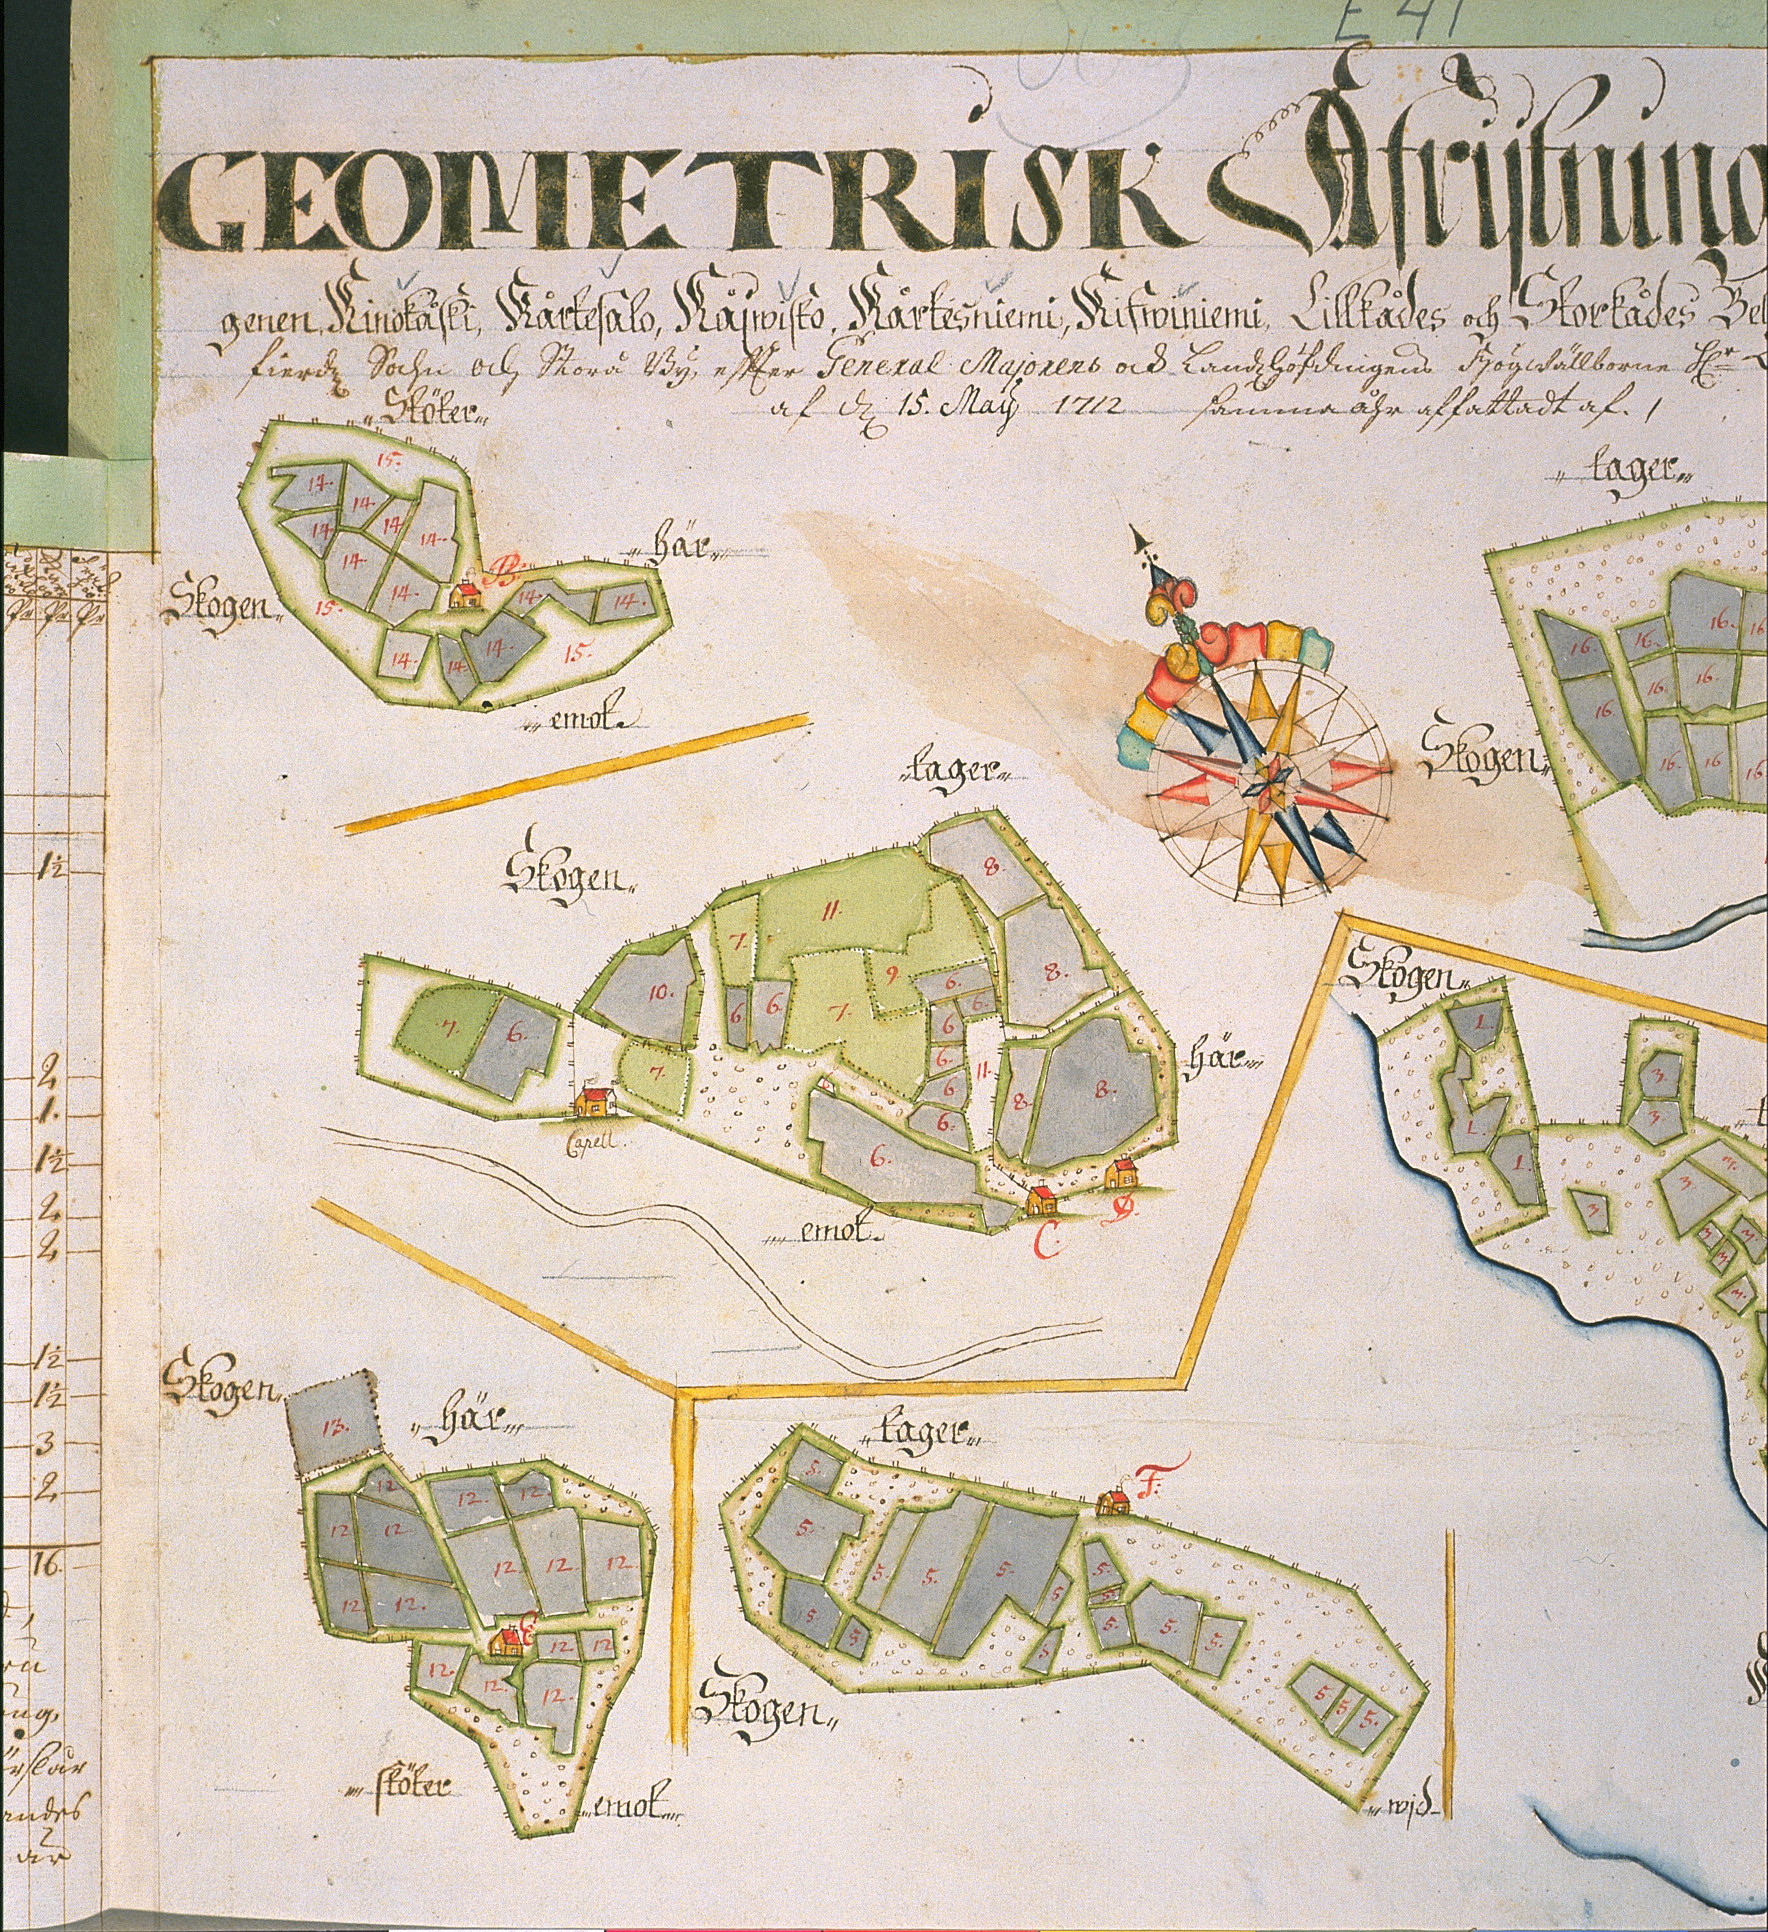 E 41
GEOMETRISK Afrijtning
genen Kinokåski, Kårkesalo, Kåjwisto, Kårkesniemi, Kifwiniemi, Lillkådes och Storkådes Bel
fierdz Sochn och Stora By, effter General Majorens och Landzhöfdingens Högwällborne Hr
af dz 15. Maij 1712 samma åhr affattadt af.
Stöter
tager
15.
14. 14. 14. 14. 14. 14. 14.
här
B.
Skogen
15.
14. 14.
14. 14. 14.
15.
emot
16. 16. 16. 16
16. 16. 16.
16. 16 16
Skogen
tager
Skogen
8.
11.
7.
10.
9.
8.
6. 6. 6. 6.
7.
7. 6.
6.
6.
11.
här
7.
6.
8. 8.
6.
Capell.
6.
D.
emot
C.
Skogen
1.
3.
3.
1.
3. 3.
1.
3
3. 3. 3.
3.
1½
2
1.
1½
2
2
1½
1½
3
2
16.
Skogen
13.
här
tager
5.
F.
12 12. 12.
12 12
5.
12 12 12
5. 5. 5.
5. 5. 5.
12 12.
5. 5. 5. 5. 5.
E
12 12
5.
12. 12. 12.
Skogen
5. 5. 5.
stöter
emot
wid